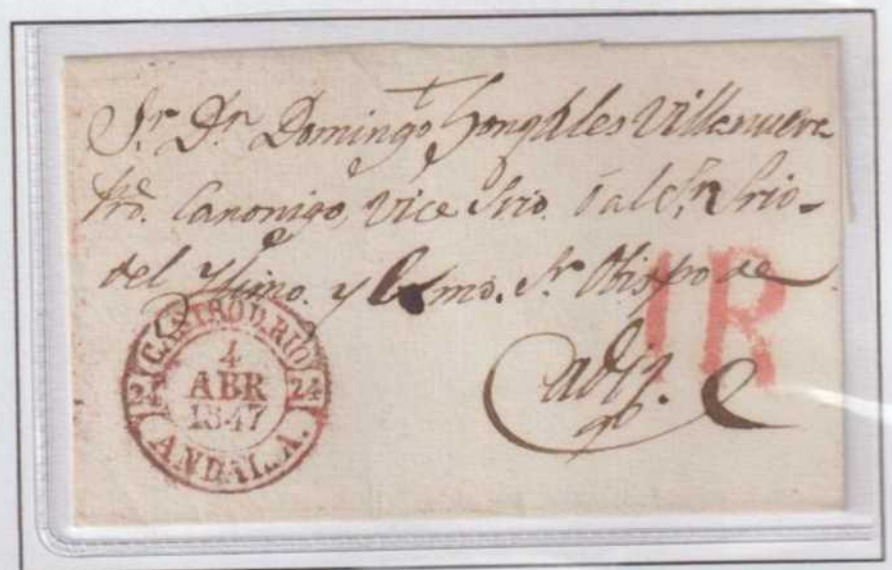 Sr. Dn. Domingo Gonzales Villanueva
Canonigo, Vice Srio.
del Yllmo. y Exmo. Sr. Obispo de
Cadiz.
1R
CASTRO D. RIO
24 24
4
ABR
1847
ANDAL.A.